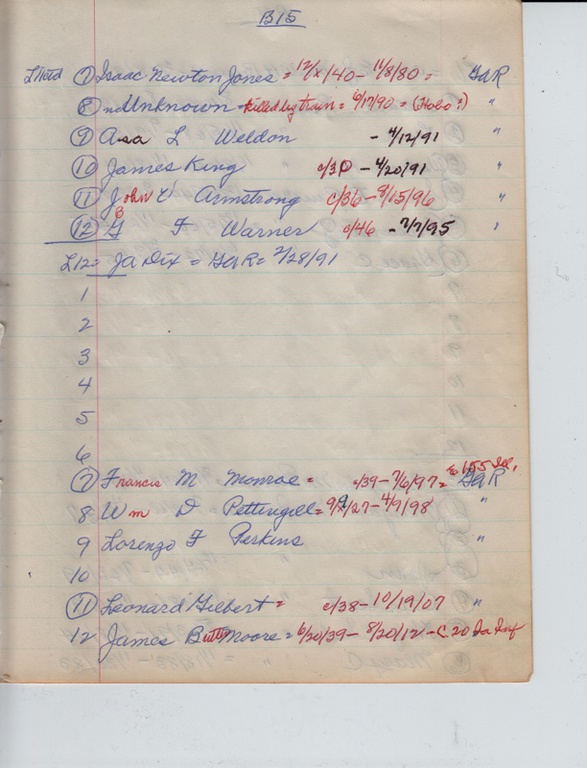 B15
⑦ Isaac Newton Jones = 12/x/40 - 11/8/80 = GaR
⑧ Unknown - killed by train = 6/17/90 = (Hobo?) "
⑨ Asa L Weldon - 4/12/91 "
⑩ James King c/30 - 4/20/91 "
⑪ John E Armstrong c/36 - 8/15/96 "
⑫ G F Warner c/46 - 7/7/95 "
L12 = Ja Dix = GaR = 2/28/91
1
2
3
4
5
6
⑦ Francis M Monroe = c/39 - 7/6/97 = 155 Ill. GaR
8 Wm D Pettengill = 9/9/27 - 4/9/98 "
9 Lorenzo F Perkins "
10
⑪ Leonard Gilbert = c/38 - 10/19/07 "
12 James Butts Moore = 6/20/39 - 8/20/12 - C. 20 Ia Inf